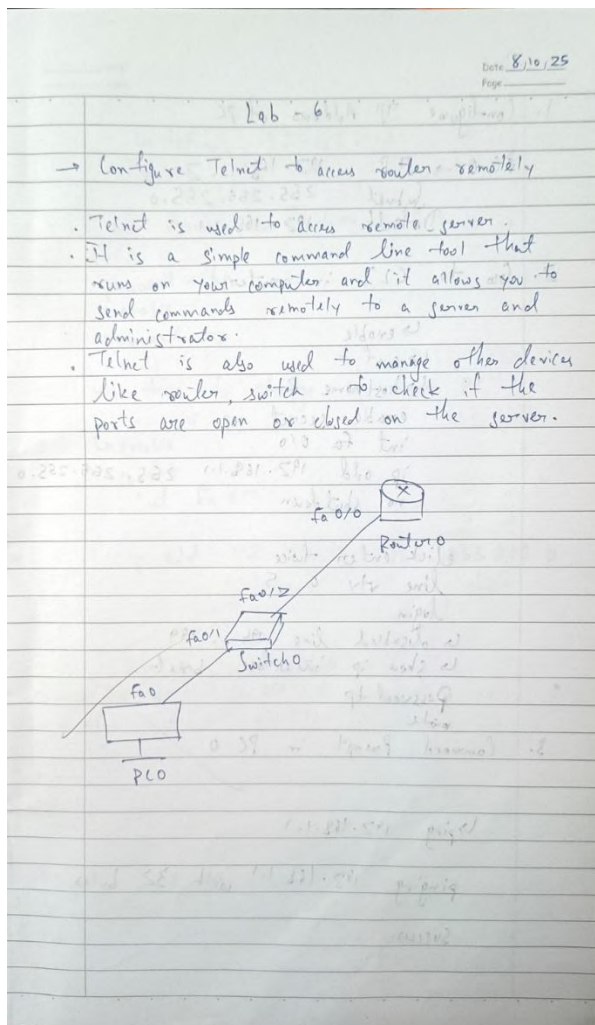 Date 8/10/25
Page
Lab 6
→ Configure Telnet to access router remotely
. Telnet is used to access remote server.
. It is a simple command line tool that
runs on your computer and it allows you to
send commands remotely to a server and
administrator.
. Telnet is also used to manage other devices
like router, switch to check if the
ports are open or closed on the server.
fa 0/0
Router0
fa0/2
fa0/1
Switch0
fa0
PC0